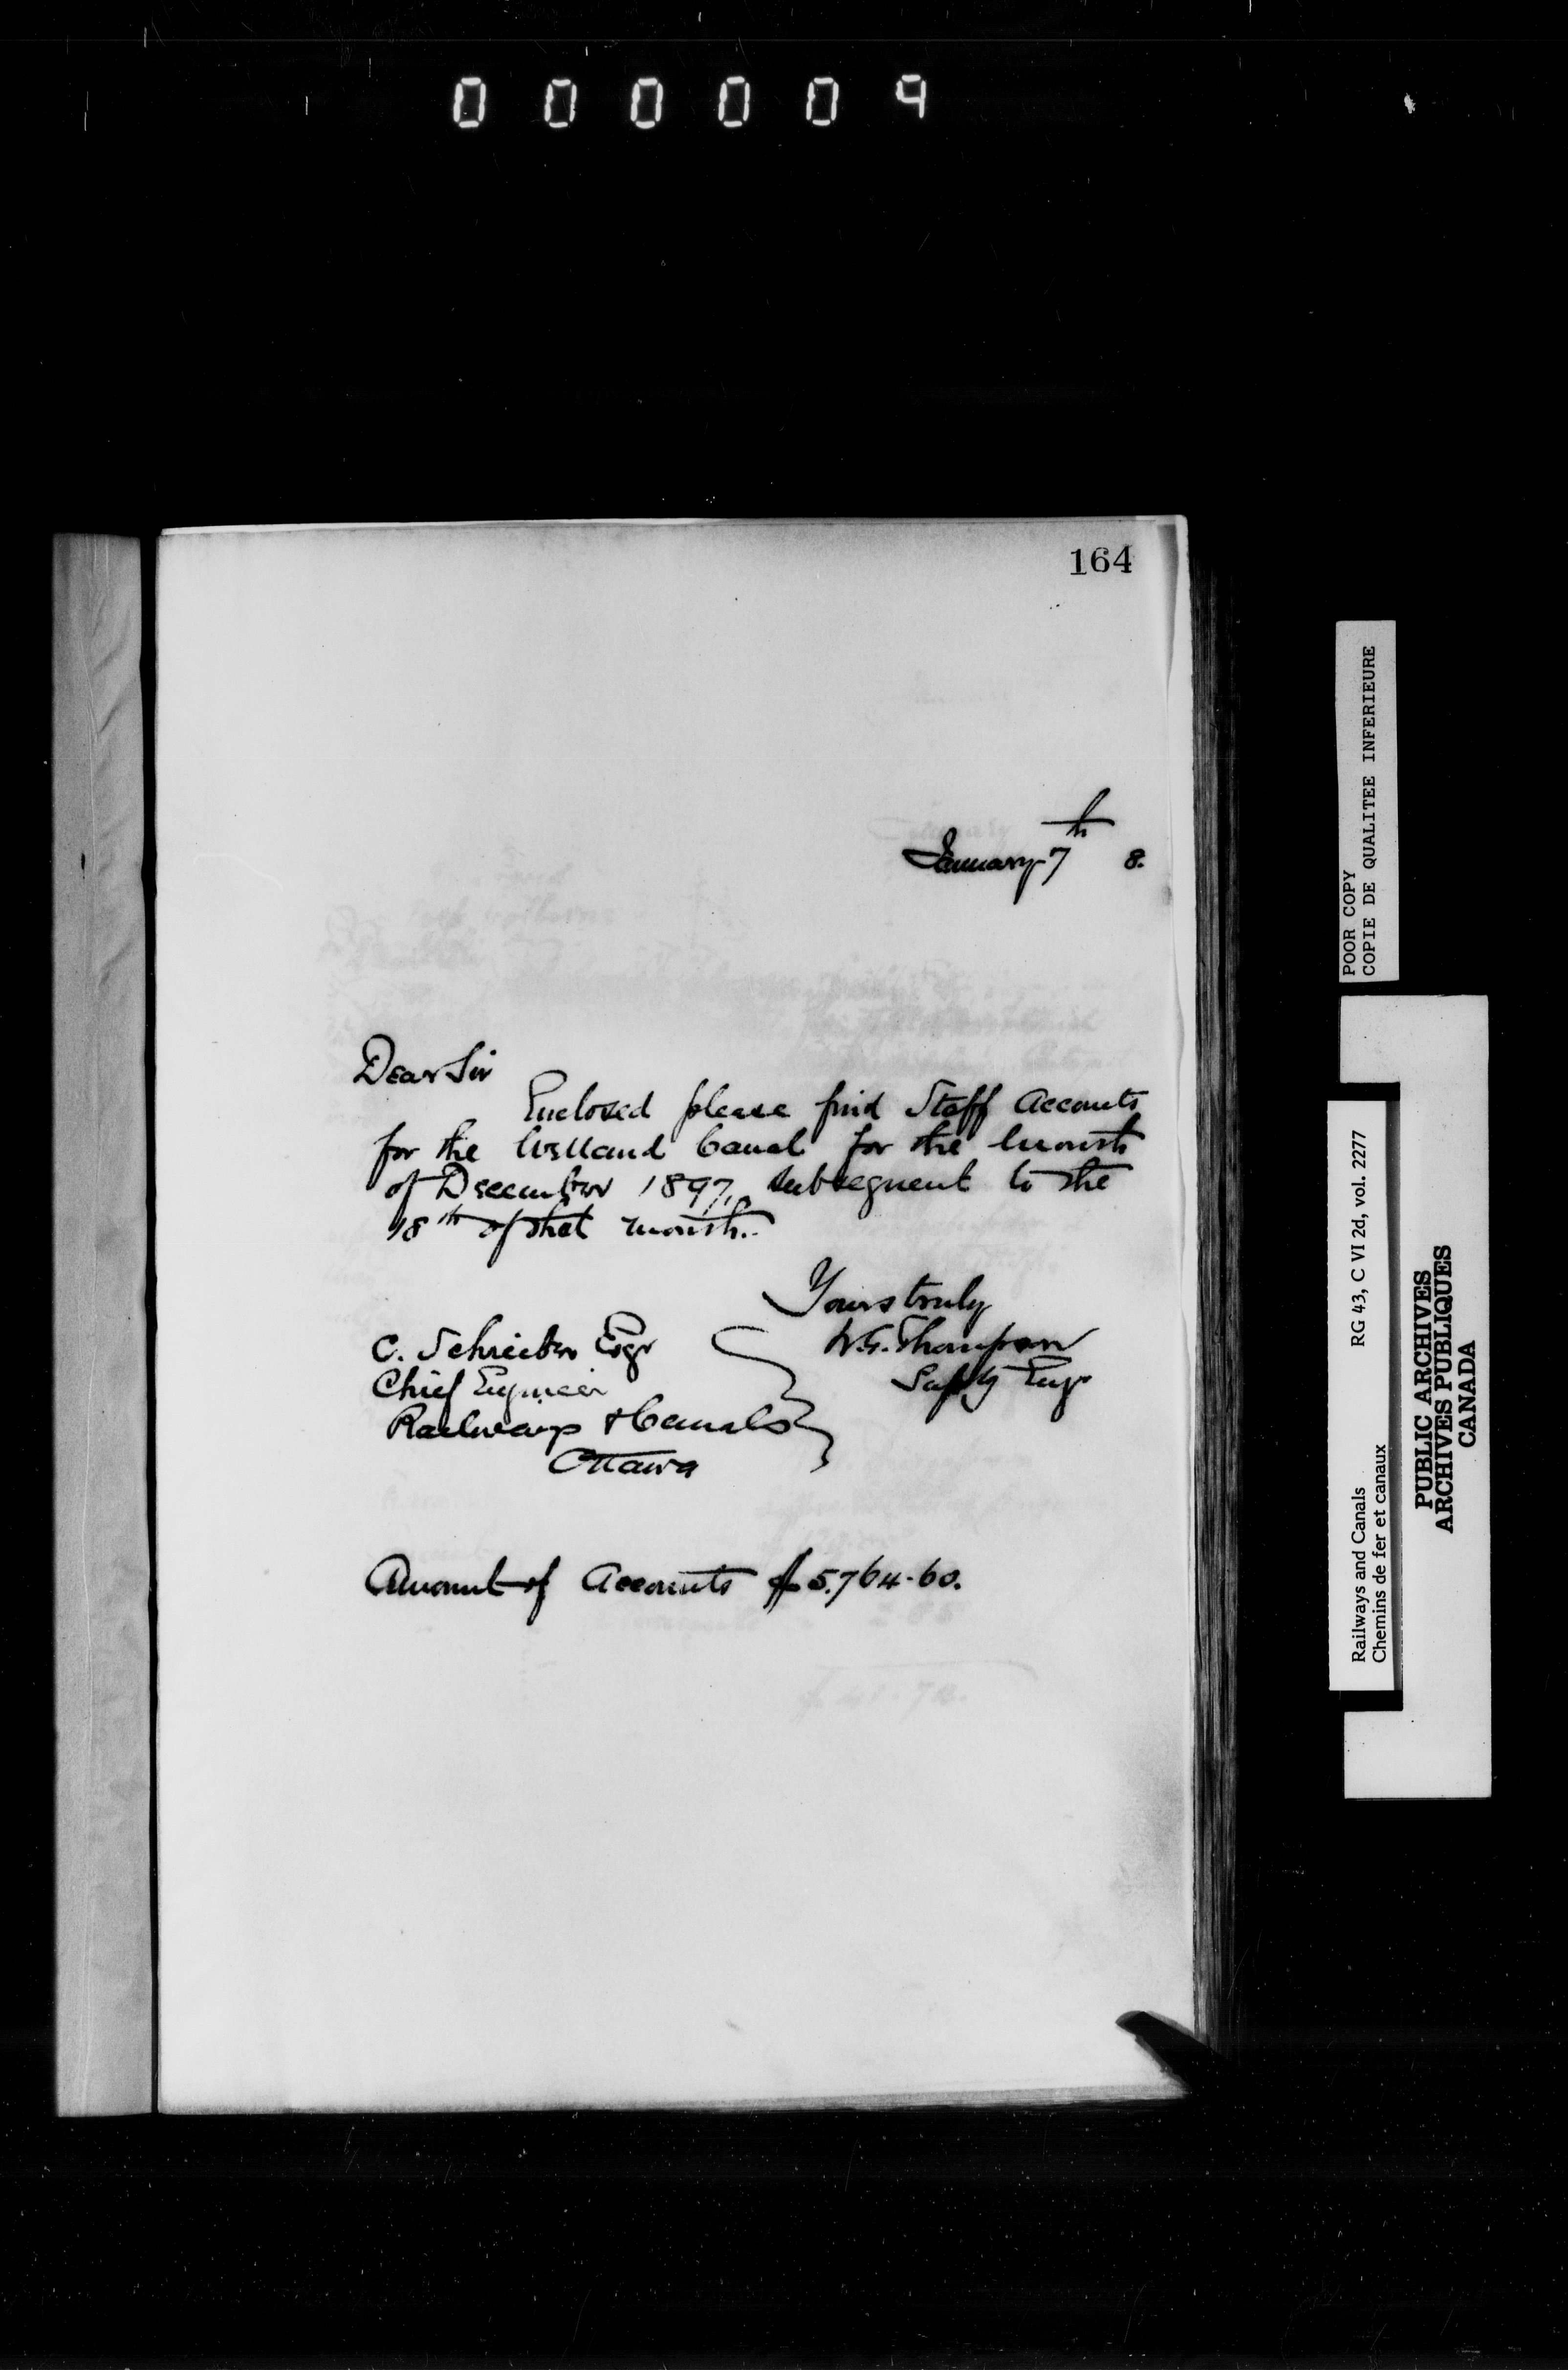 000009
164
January 7th 8.
Dear Sir
Enclosed please find Staff Accounts
for the Welland Canal for the month
of December 1897, subsequent to the
18th of that month.
Yours truly
W.G. Thompson
Suptg Engr
C. Schreiber Esqr
Chief Engineer
Railways & Canals
Ottawa
Amount of Accounts $5,764.60.
POOR COPY
COPIE DE QUALITEE INFERIEURE
Railways and Canals RG 43, C VI 2d, vol. 2277
Chemins de fer et canaux
PUBLIC ARCHIVES
ARCHIVES PUBLIQUES
CANADA